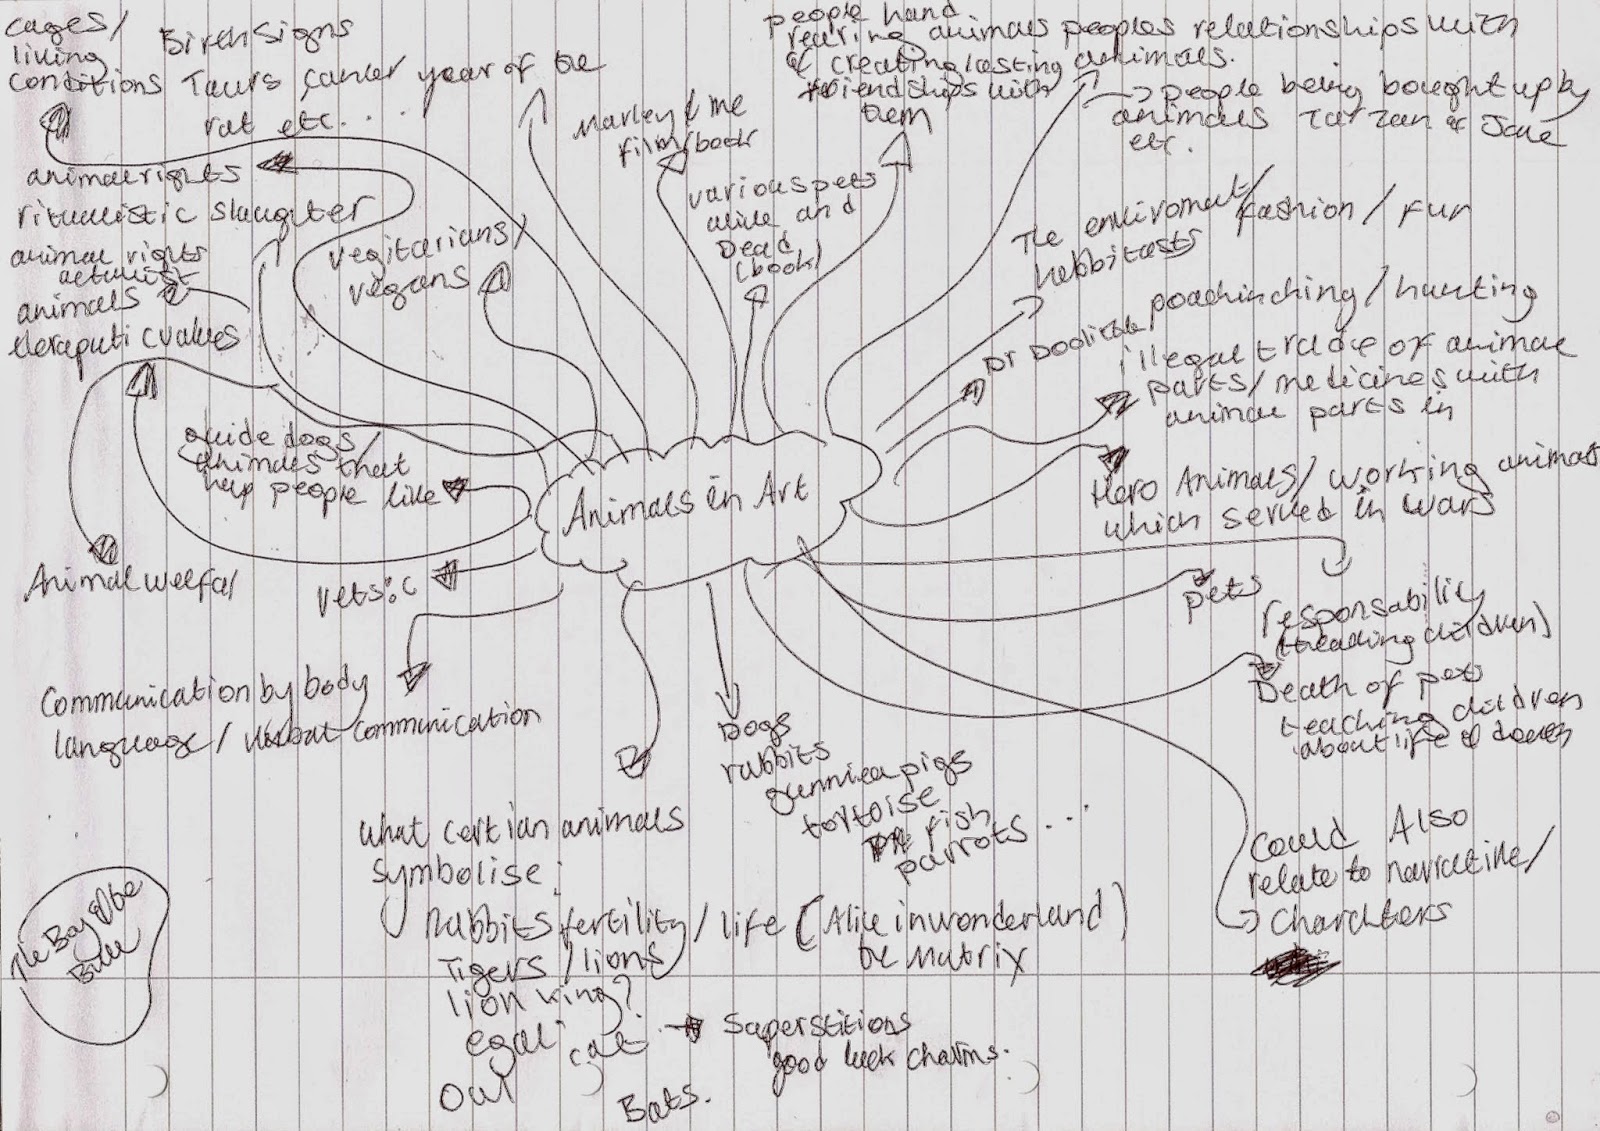 cages/
living
conditions
Birth Signs
Taurs, cancer year of the
rat etc....
animal rights
ritualistic slaughter
animal rights
activist
animals
theraputic values
vegitarians/
vegans
Marley & me
film/book
various pets
alive and
Dead
(book)
people hand
rearing animals
& creating lasting
friendships with
them
peoples relationships with
animals.
→ people being bought up by
animals Tarzan & Jane
etc.
The enviroment/
habbitasts
fashion / fur
Dr Doolittle
poachinching / hunting
illegal trade of animal
parts/medicines with
animal parts in
Hero Animals/working animals
which served in wars
guide dogs/
animals that
help people like
Animals in Art
Animal welfar
vets :c
pets
responsability
(treading children)
Death of pets
teaching children
about life & death
Communication by body
language / verbal communication
Dogs
rabbits
gunniea pigs
tortoise
fish
parrots ...
what certian animals
symbolise:
Rabbits fertility / life (Alice in wonderland)
the Matrix
Tigers / lions
lion king?
egal
cat → Saperstitions
good luck charms.
Owl
Bats.
Could Also
relate to narrative/
Charachters
The Boy & the